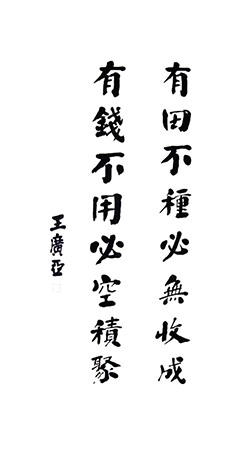 有田不種必無收成
有錢不用必空積聚
王廣亞